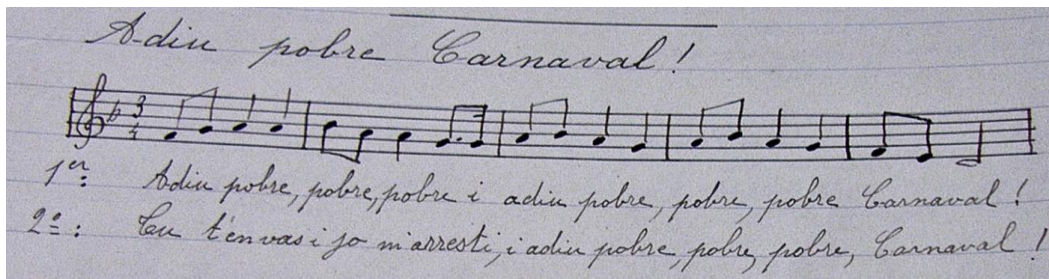 Adiu pobre Carnaval!
3
4
1er: Adiu pobre, pobre, pobre i adiu pobre, pobre, pobre Carnaval!
2º: Tu t'en vas i jo m'arresti, i adiu pobre, pobre, pobre, Carnaval!